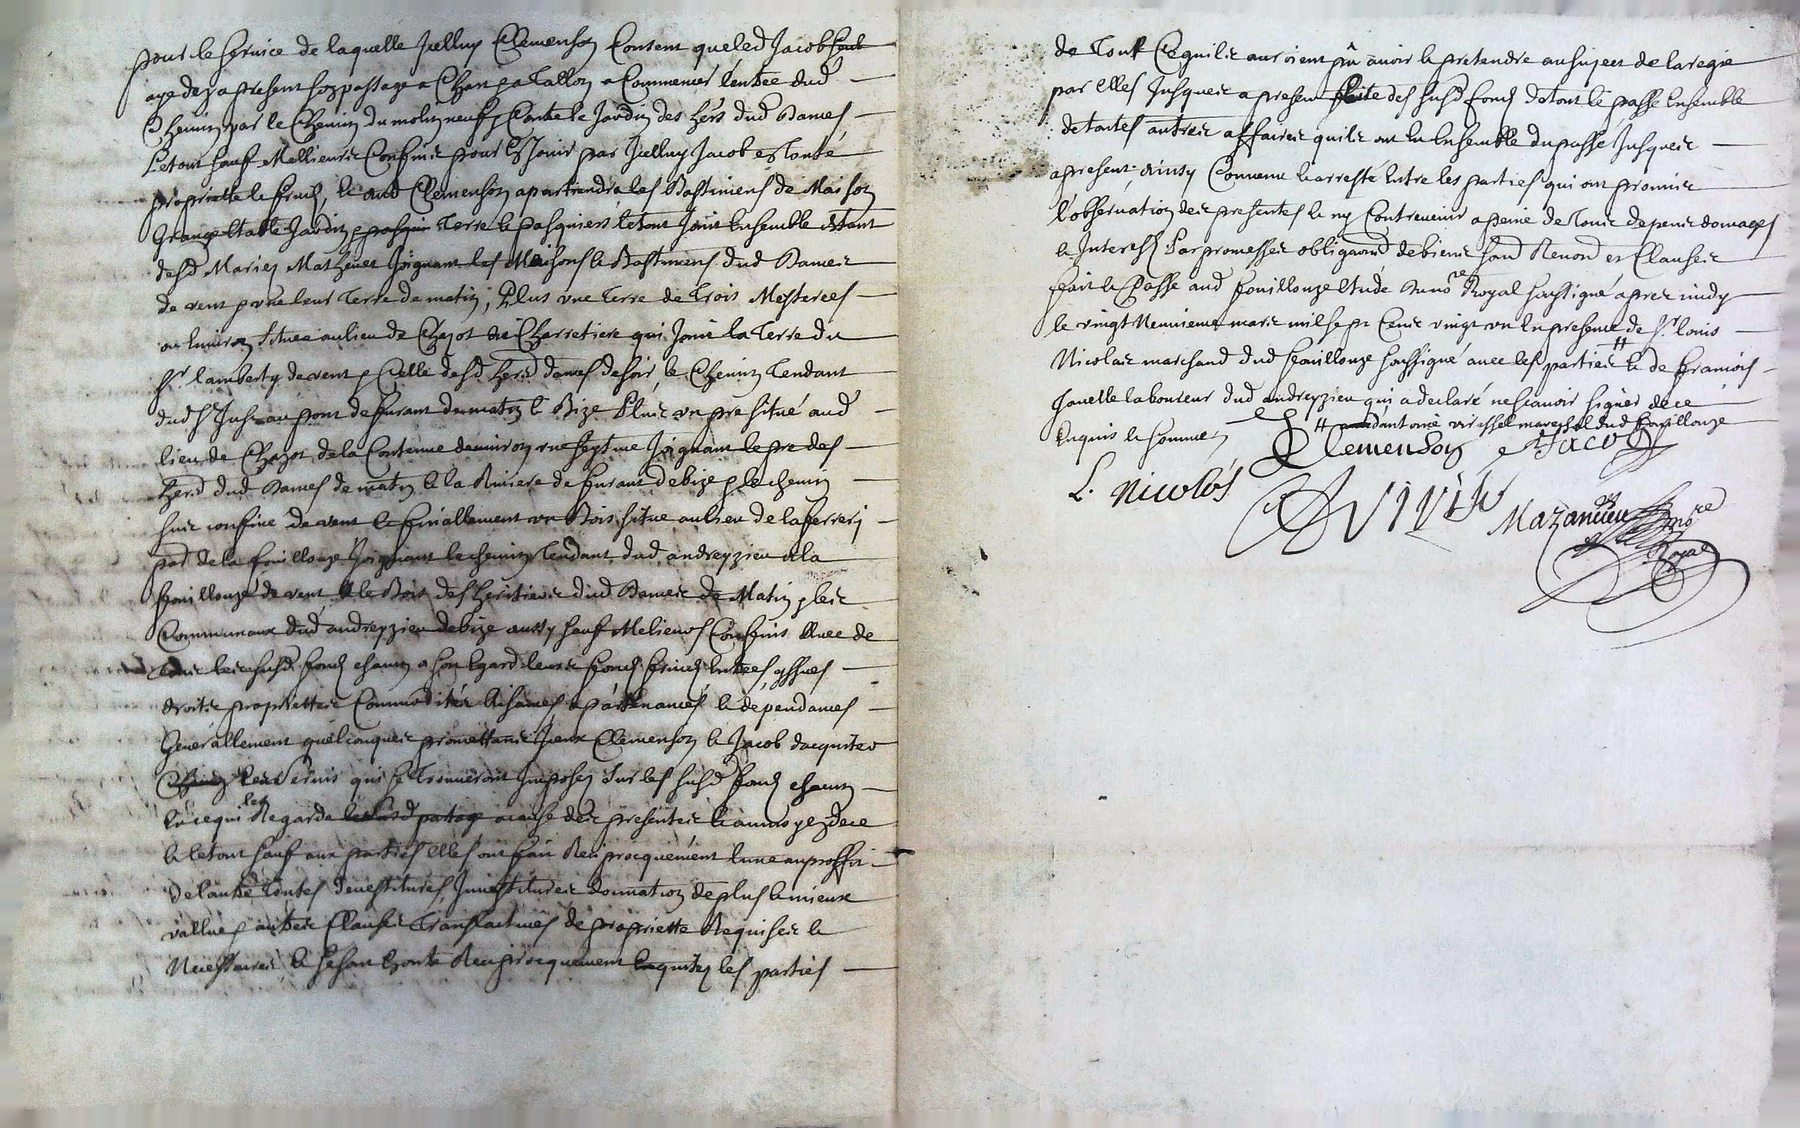 pour le service de laquelle Jcelluy Clemenson Consent que led Jacob
aye des a present son passage a Char et a Tallon a Commencer lentree dud
Chemin par le Chemin du molin neuf Contre le Jardin des hers dud Dames
Letout sauf Mellieurs Confins pour En Jouir par Jcelluy Jacob en toute
proprietté le fruis, le aud Clemenson apartiendra les Bastimens de Maison
Grange Etable Jardin Terre le pasquiers letout Joint Ensemble Estant
desd Maries Mathevet Joignant les Maisons le Bastimens dud Dames
de vent pour leur Terre de matin, Plus vne Terre de Trois Mesterees
ou Environ situee au lieu de Chazot ou Charretiere qui Joint la Terre du
Sr lamberty de vent Celle desd herd dames de soir, le Chemin Tendant
dud St Just au pont de furant de matin le Bize Plus vn pre situé aud
lieu de Chazot de la Contenue denviron Joignant le pre des
herd dud Dames de matin le la Riviere de furant de bize le chemin
confine de vent le finallement vn Bois situe au lieu de la
par de la fouillouze Joignant le chemin Tendant dud andrezieu a la
fouillouze de vent le Bois des heritiers dud Dames de Matin les
Communaux dud andrezieu de bize aussy sauf Meliures Confins Avec de
tous les susd fonds chacun a son Egard leurs fonds fruis Entrees yssues
droits proprietter Commoditer Aisances apartenances le dependances
Generallement quelconques promettants Jceux Clemenson le Jacob dacquiter
les servis qui se Trouveront Imposés sur les susd fonds chacun
En ce qui les Regarde a cause des presentes le au moyen de ce
le letout sauf aux parties elles ont fait Reciprocquement lune au proffit
de lautre Toutes devestitures Jnvestitures donnation de plus le mieux
vallues autres Clauses Translatives de proprietté Requises le
Necessaires le se sont Reciprocquement Enquitez les parties
de Tout Ce quils auroient pû avoir le pretendre au sujet de la regie
par Elles Jusques a present faite des susd fonds de tout le passé Ensemble
de toutes autres affaires quils ont En Ensemble du passé Jusques
a present, Ainsy Convenu le arresté Entre les parties qui ont promis
l'observation des presentes le ny Contrevenir a peine de Tous depens domages
le Interests Par promesses obligations de biens Renond et Clauses
fait le Passe aud fouillouze Etude du nore Royal sousigné apres midy
le vingt Neuvieme mars mil sept Cens vingt vn En presence de Sr louis
Nicolas marchand dud fouillouze soussigné avec les parties # le de francois
laboureur dud andrezieu qui a declaré ne scavoir signer de ce
Enquis le sommé # dantoine mareschal dud fouillouze
Clemenson Jacob
L. Nicolas
Mazancieu nore
Royal